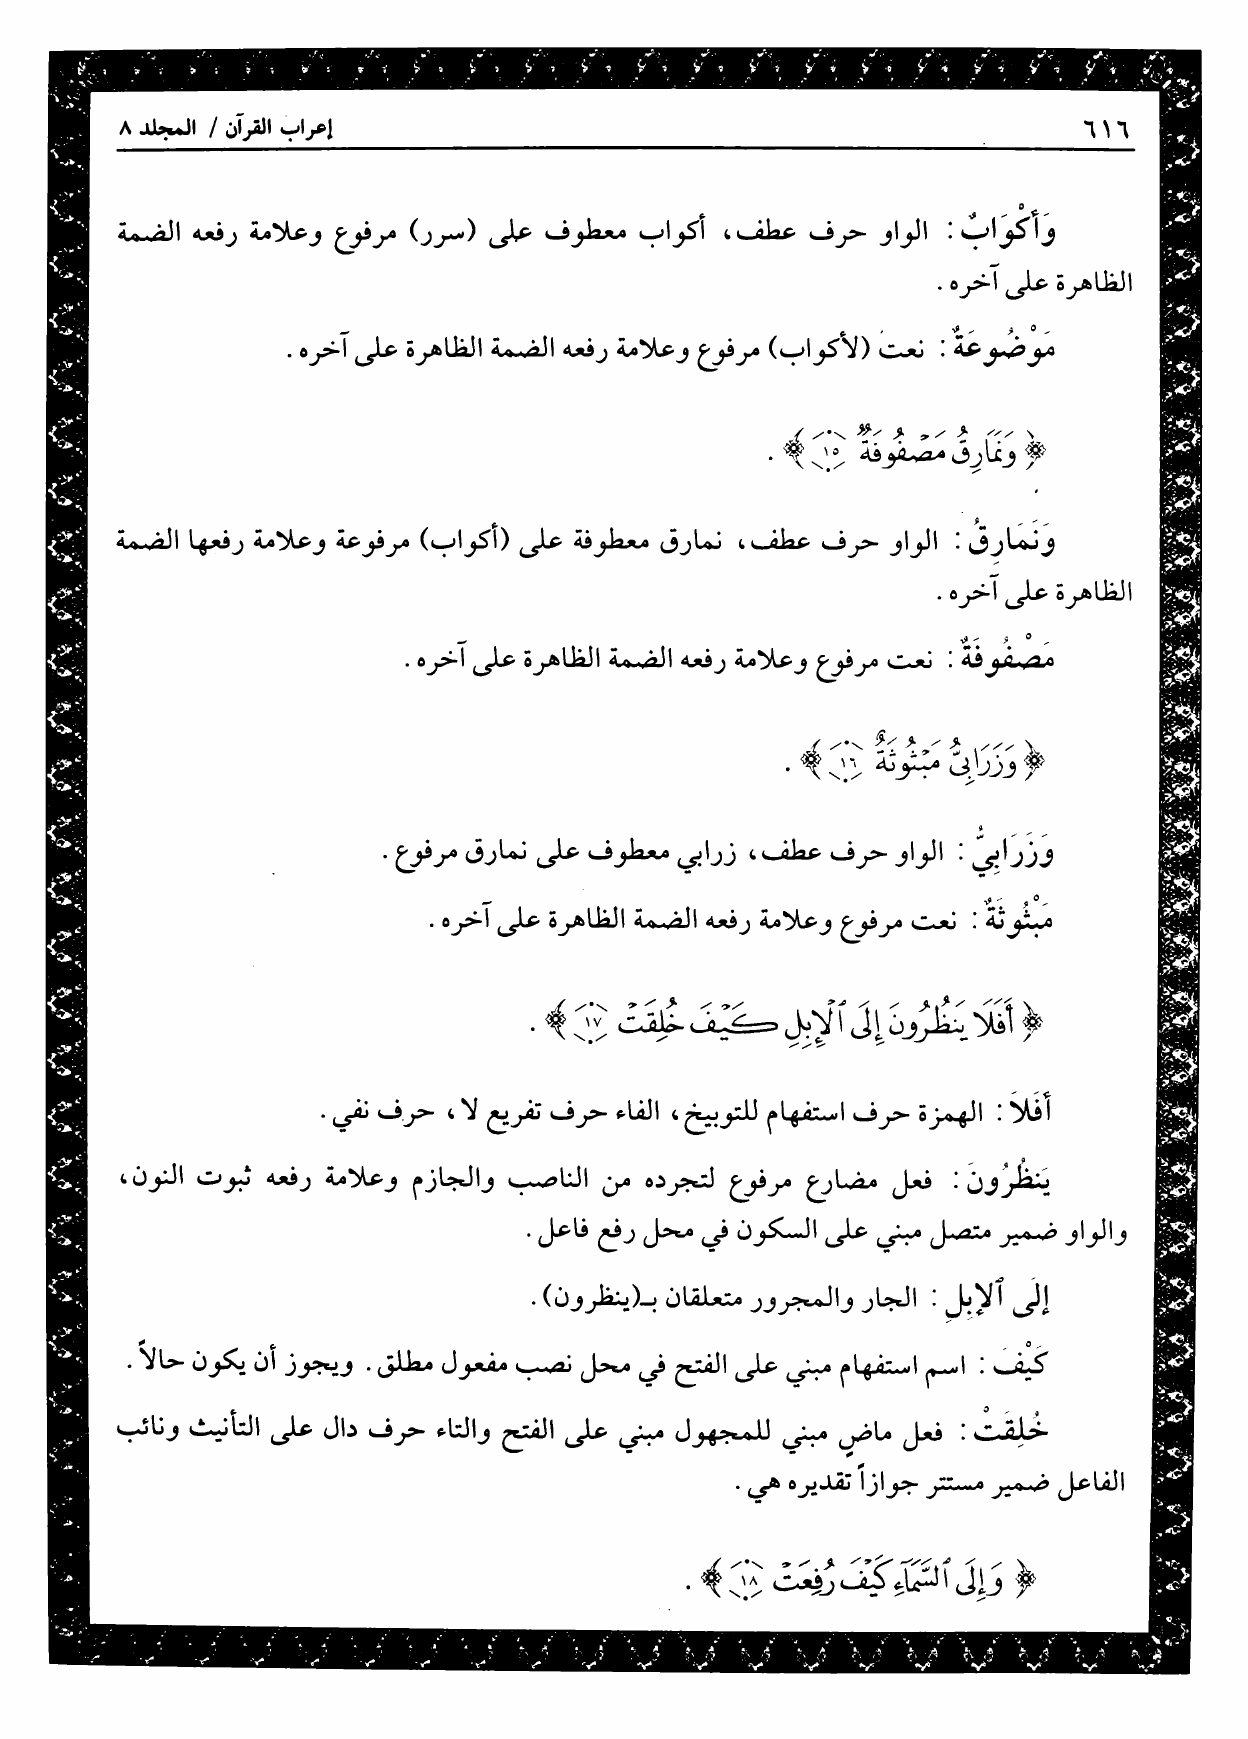 ٦١٦
إعراب القرآن / المجلد ٨
وَأَكْوَابٌ : الواو حرف عطف، أكواب معطوف على (سرر) مرفوع وعلامة رفعه الضمة
الظاهرة على آخره .
مَوْضُوعَةٌ : نعت (لأكواب) مرفوع وعلامة رفعه الضمة الظاهرة على آخره .
﴿ وَنَمَارِقُ مَصْفُوفَةٌ ١٥ ﴾ .
وَنَمَارِقُ : الواو حرف عطف، نمارق معطوفة على (أكواب) مرفوعة وعلامة رفعها الضمة
الظاهرة على آخره .
مَصْفُوفَةٌ : نعت مرفوع وعلامة رفعه الضمة الظاهرة على آخره .
﴿ وَزَرَابِيُّ مَبْثُوثَةٌ ١٦ ﴾ .
وَزَرَابِيُّ : الواو حرف عطف، زرابي معطوف على نمارق مرفوع .
مَبْثُوثَةٌ : نعت مرفوع وعلامة رفعه الضمة الظاهرة على آخره .
﴿ أَفَلَا يَنظُرُونَ إِلَى ٱلْإِبِلِ كَيْفَ خُلِقَتْ ١٧ ﴾ .
أَفَلاَ : الهمزة حرف استفهام للتوبيخ، الفاء حرف تفريع لا، حرف نفي .
يَنظُرُونَ : فعل مضارع مرفوع لتجرده من الناصب والجازم وعلامة رفعه ثبوت النون،
والواو ضمير متصل مبني على السكون في محل رفع فاعل .
إِلَى ٱلإِبِلِ : الجار والمجرور متعلقان بـ(ينظرون) .
كَيْفَ : اسم استفهام مبني على الفتح في محل نصب مفعول مطلق . ويجوز أن يكون حالاً .
خُلِقَتْ : فعل ماضٍ مبني للمجهول مبني على الفتح والتاء حرف دال على التأنيث ونائب
الفاعل ضمير مستتر جوازاً تقديره هي .
﴿ وَإِلَى ٱلسَّمَآءِ كَيْفَ رُفِعَتْ ١٨ ﴾ .